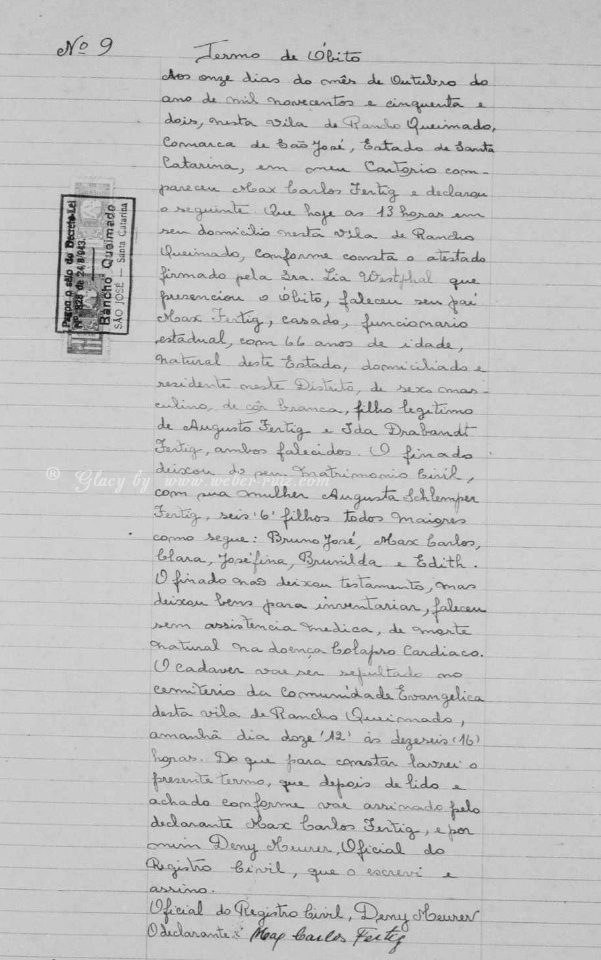 Nº 9
Termo de Óbito
Aos onze dias do mês de Outubro do
ano de mil novecentos e cinquenta e
dois, nesta vila de Rancho Queimado,
Comarca de São José, Estado de Santa
Catarina, em meu Cartorio com-
pareceu Max Carlos Fertig e declarou
o seguinte. Que hoje as 13 horas em
seu domicilio nesta vila de Rancho
Queimado, conforme consta o atestado
firmado pela Sra. Lia Westphal que
presenciou o Óbito, faleceu seu pai
Max Fertig, casado, funcionario
estadual, com 66 anos de idade,
natural deste Estado, domiciliado e
residente neste Distrito, de sexo mas-
culino, de côr branca, filho legitimo
de Augusto Fertig e Ida Drabandt
Fertig, ambos falecidos. O finado
deixou de seu matrimonio Civil,
com sua mulher Augusta Schlemper
Fertig, seis '6' filhos todos maiores
como segue: Bruno José, Max Carlos,
Clara, Joséfina, Brunilda e Edith.
O finado não deixou testamento, mas
deixou bens para inventariar, faleceu
sem assistencia medica, de morte
natural na doença Colapso Cardiaco.
O cadaver vae ser sepultado no
cemiterio da Comunidade Evangelica
desta vila de Rancho Queimado,
amanhã dia doze '12' ás dezeseis '16'
horas. Do que para constar lavrei o
presente termo, que depois de lido e
achado conforme vae assinado pelo
declarante Max Carlos Fertig, e por
mim Deny Meurer, Oficial do
Registro Civil, que o escrevi e
assino.
Oficial do Registro Civil, Deny Meurer
O declarante: Max Carlos Fertig
Pagou o sêlo do Decreto-Lei
Rancho Queimado
SÃO JOSÉ — Santa Catarina
® Glacy by www.weber-ruiz.com